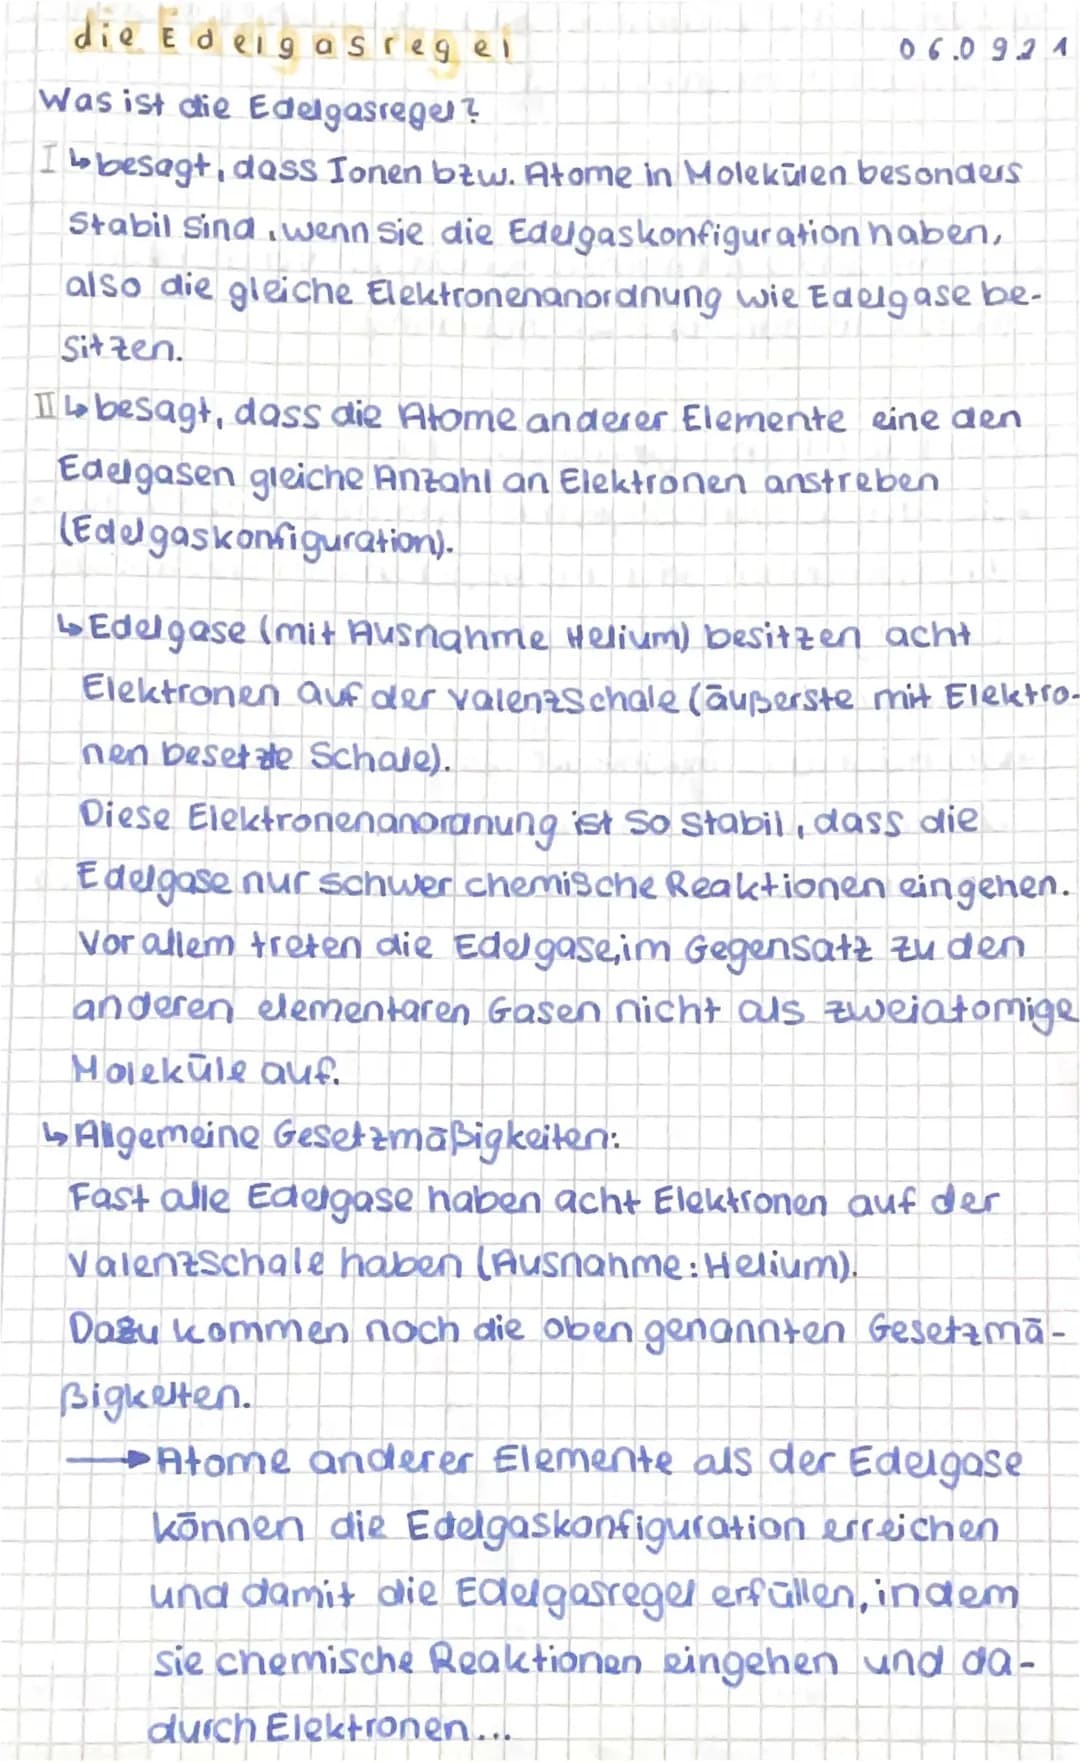 die Edelgasregel
06.09.21
Was ist die Edelgasregel?
I ↳ besagt, dass Ionen bzw. Atome in Molekülen besonders
stabil sind, wenn sie die Edelgaskonfiguration haben,
also die gleiche Elektronenanordnung wie Edelgase be-
sitzen.
II ↳ besagt, dass die Atome anderer Elemente eine den
Edelgasen gleiche Anzahl an Elektronen anstreben
(Edelgaskonfiguration).
↳ Edelgase (mit Ausnahme Helium) besitzen acht
Elektronen auf der Valenzschale (äußerste mit Elektro-
nen besetzte Schale).
Diese Elektronenanordnung ist so stabil, dass die
Edelgase nur schwer chemische Reaktionen eingehen.
Vor allem treten die Edelgase, im Gegensatz zu den
anderen elementaren Gasen nicht als zweiatomige
Moleküle auf.
↳ Allgemeine Gesetzmäßigkeiten:
Fast alle Edelgase haben acht Elektronen auf der
Valenzschale haben (Ausnahme: Helium).
Dazu kommen noch die oben genannten Gesetzmä-
ßigkeiten.
→ Atome anderer Elemente als der Edelgase
können die Edelgaskonfiguration erreichen
und damit die Edelgasregel erfüllen, indem
sie chemische Reaktionen eingehen und da-
durch Elektronen...